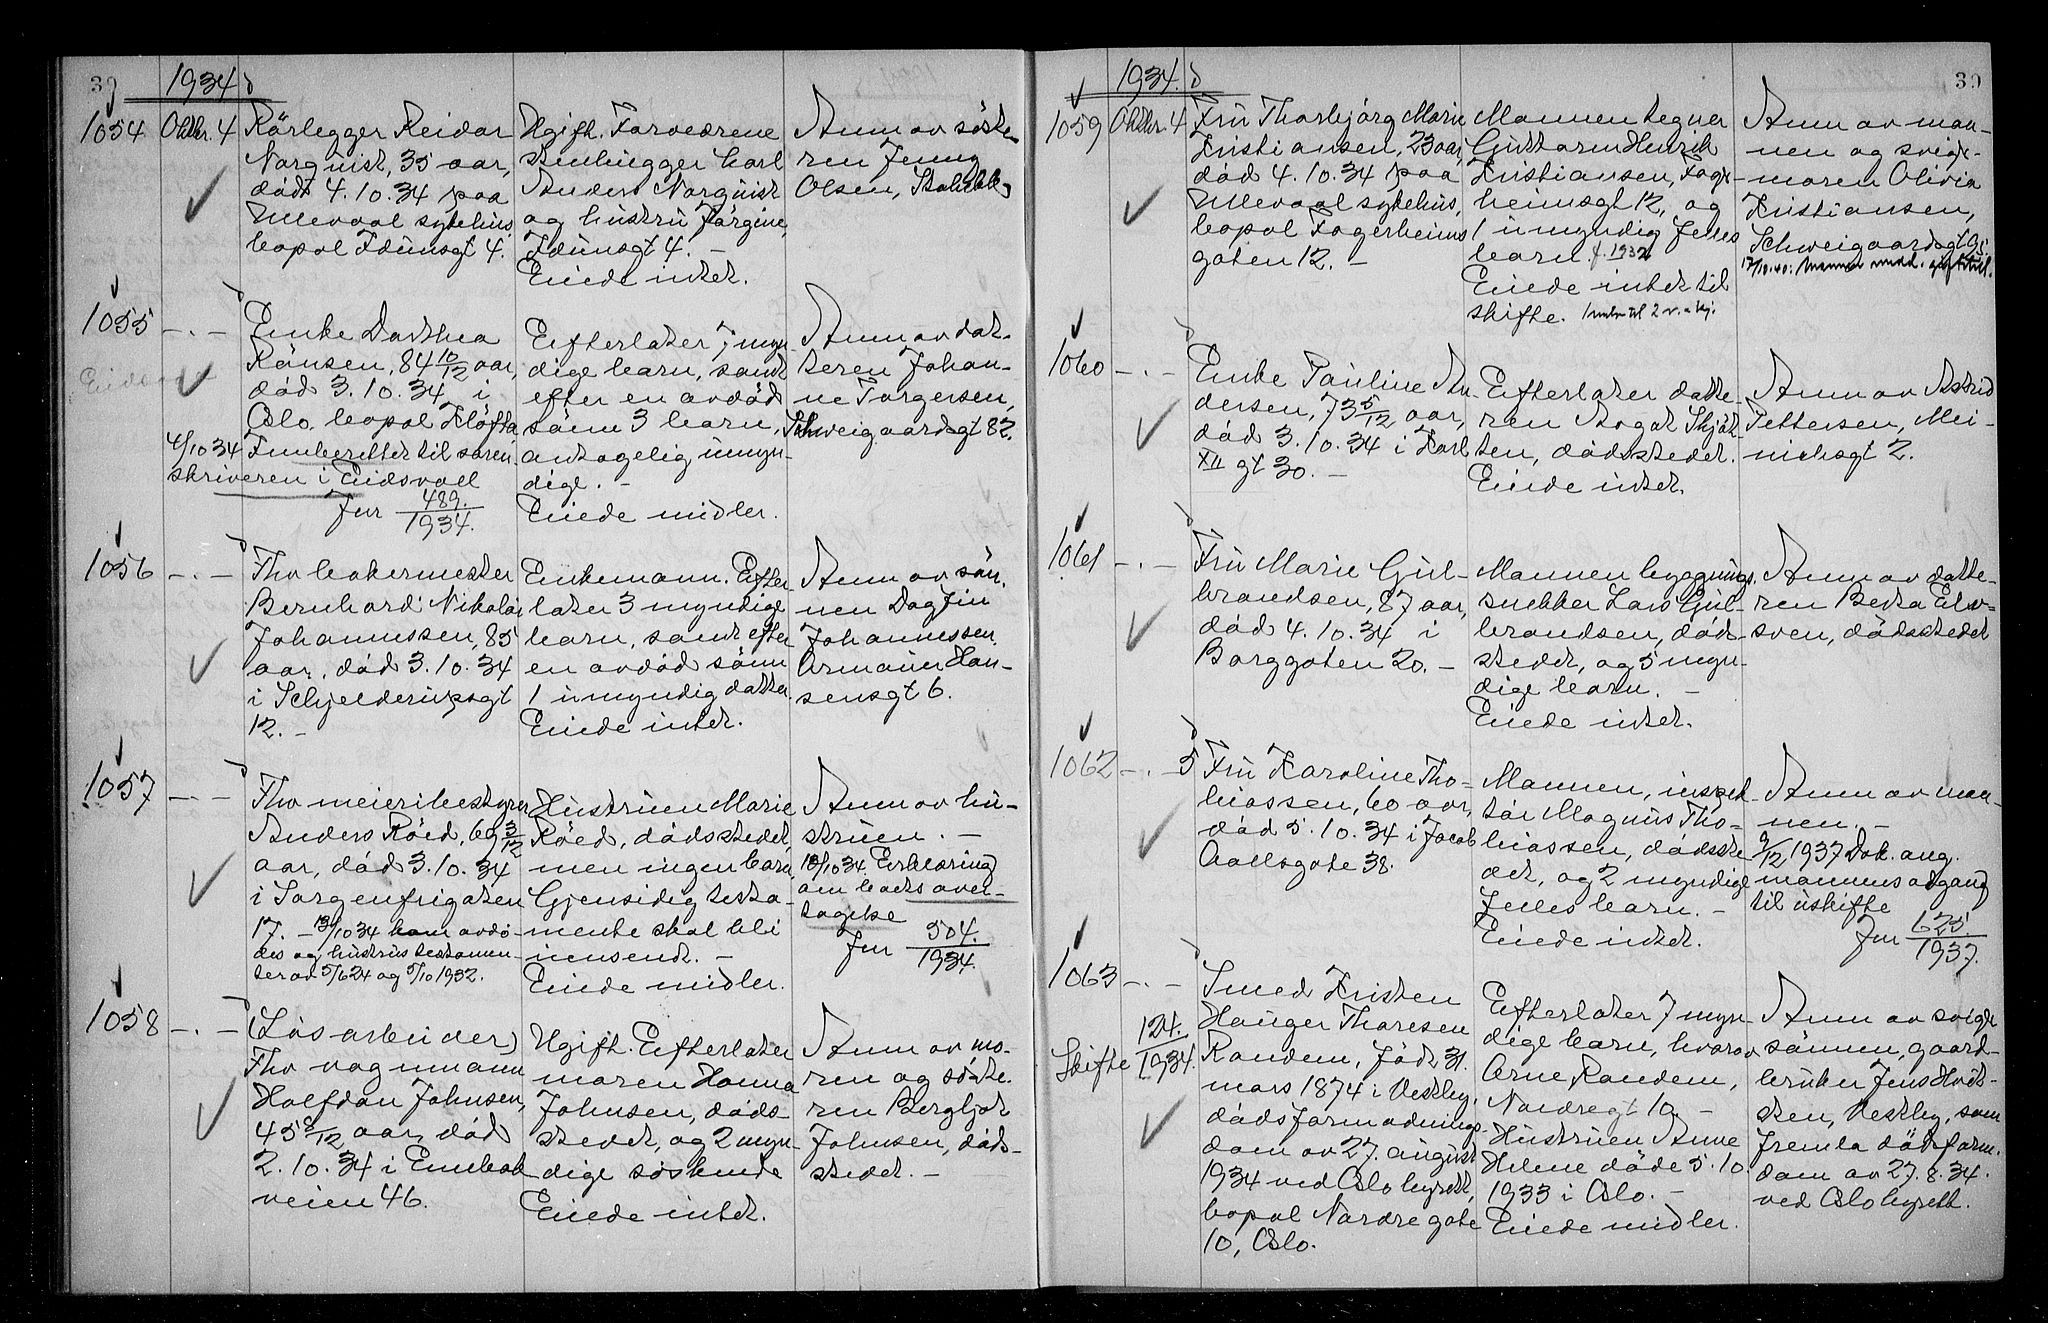 39
1934
1054
Oktbr. 4
Rörlegger Reidar
Norqvist, 35 aar,
död 4.10.34 paa
Ullevaal sykehus,
bopel Idunsgt 4.
Ugift. Forældrene
stenhugger Karl
Anders Norqvist
og hustru Jörgine,
Idunsgt 4. –
Eiede intet.
Anm av söste-
ren Jenny
Olsen,
1055
– . –
Enke Dorthea
Rönsen, 84 10/12 aar,
död 3.10.34 i
Oslo. bopel Kløfta
4/10 34 Innberettet til soren-
skriveren i Eidsvoll
Jnr 489./1934.
Efterlater 7 myn-
dige barn, samt
efter en avdöd
sönn 3 barn,
antagelig umyn-
dige. –
Eiede midler.
Anm av dat-
teren Johan-
ne Torgersen,
Schweigaardsgt 82.
1056
– . –
Fhv bakermester
Bernhard Nikolai
Johannessen, 85
aar, död 3.10.34
i Schjelderupsgt
12. –
Enkemann. Efter-
later 3 myndige
barn, samt efter
en avdöd sönn
1 umyndig datter.
Eiede intet.
Anm av sön-
nen Dagfin
Johannessen
Armauer Han-
sensgt 6.
1057
– . –
Fhv meieribestyrer
Anders Röed, 69 3/12
aar, död 3.10.34
i Sorgenfrigaten
17. – 13/10 34 kom avdö-
des og hustrus testamen-
ter av 5/6 24 og 5/10 1932.
Hustruen Marie
Röed, dödsstedet,
men ingen barn,
Gjensidig testa-
mente skal bli
innsendt. –
Eiede midler.
Anm av hu-
struen. –
18/10 34 Erklæring
om boets over-
tagelse
Jnr 504./1934.
1058
– . –
(Lösarbeider)
Fhv vognmann
Halfdan Johnsen,
45 8/12 aar, död
2.10.34 i Enebak
veien 46.
Ugift. Efterlater
moren Hanna
Johnsen, döds-
stedet, og 2 myn-
dige söskende
Eiede intet.
Anm av mo-
ren og söste-
ren Bergljot
Johnsen, döds-
stedet. –
39
1934.
1059
Oktbr. 4
Fru Thorbjörg Marie
Kristiansen, 23 aar,
död 4.10.34 paa
Ullevaal sykehus,
bopel Fagerheims
gaten 12. –
Mannen tegner
Guttorm Henrik
Kristiansen, Fager-
heimsgt 12, og
1 umyndig felles
barn f. 1932
Eiede intet til
skifte.
Anm av man-
nen og svige-
moren Olivia
Kristiansen,
Schweigaardsgt
1060
– . –
Enke Pauline An-
dersen, 73 5/12 aar,
död 3.10.34 i Karl
XII gt 30. –
Efterlater datte-
ren Aagot Skjöt-
ten, dödsstedet.
Eiede intet.
Anm av Astrid
Pettersen, Mei-
nichsgt 2.
1061
– . –
Fru Marie Gul-
brandsen, 87 aar,
död 4.10.34 i
Borggaten 20. –
Mannen bygnings-
snekker Lars Gul-
brandsen, död-
stedet, og 5 myn-
dige barn. –
Eiede intet.
Anm av datte-
ren Berta
dödsstedet
1062
– . – 5
Fru Karoline Tho-
biassen, 60 aar,
död 5.10.34 i Jacob
Aallsgate 38.
Mannen, inspek-
tör Magnus Tho-
biassen, dödsste-
det, og 2 myndige
felles barn. –
Eiede intet.
Anm av man-
nen. –
9/12 1937 Dok. ang.
mannens adgang
til uskifte
Jnr 625./1937.
1063
– . –
Skifte 124./1934.
Smed Kristen
Hauger Thoresen
Randem, född 31.
mars 1874 i Vestby,
dödsformodnings-
dom av 27. august
1934 ved Oslo byrett,
bopel Nordre gate
10, Oslo.
Efterlater 7 myn-
dige barn, hvorav
Arne Randem,
Nordregt 10. –
Hustruen Anne
Helene döde 5.10.
1933 i Oslo. –
Eiede midler.
Anm av svige-
sönnen, gaard-
bruker Jens
Vestby, som
fremla dödsform.
dom av 27.8.34.
ved Oslo byrett.